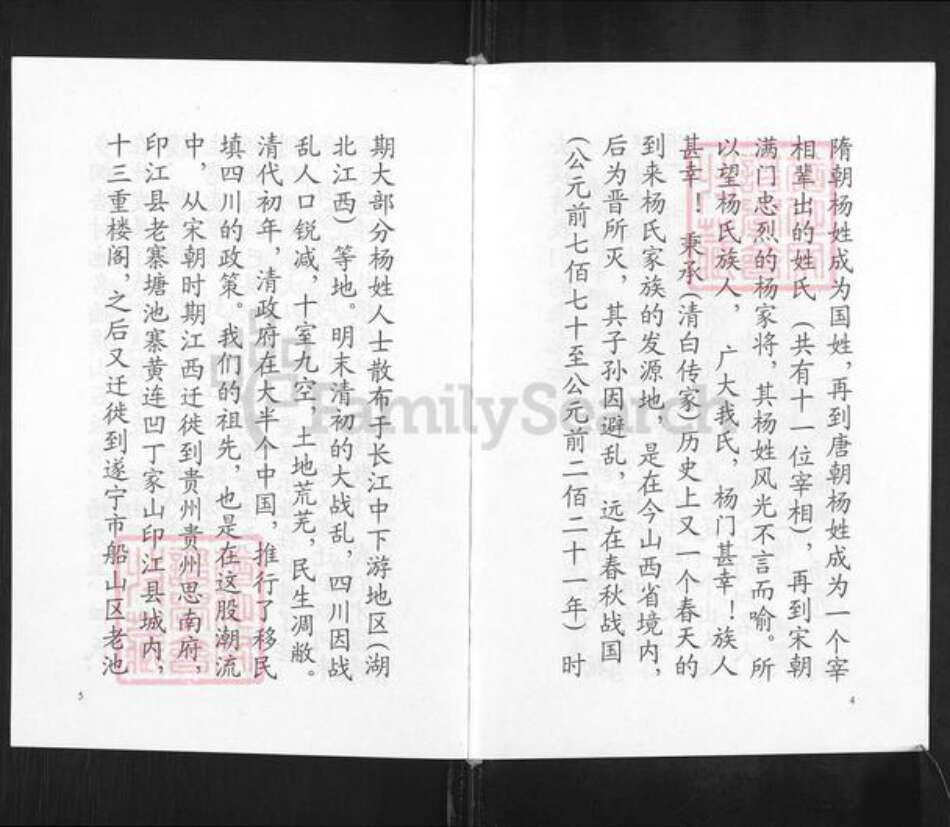 隋朝杨姓成为国姓，再到唐朝杨姓成为一个宰
相辈出的姓氏（共有十一位宰相），再到宋朝
满门忠烈的杨家将，其杨姓风光不言而喻。所
以望杨氏族人，广大我氏，杨门甚幸！族人
甚幸！秉承（清白传家）历史上又一个春天的
到来杨氏家族的发源地，是在今山西省境内，
后为晋所灭，其子孙因避乱，远在春秋战国
（公元前七佰七十至公元前二佰二十一年）时
4
期大部分杨姓人士散布于长江中下游地区（湖
北江西）等地。明末清初的大战乱，四川因战
乱人口锐减，十室九空，土地荒芜，民生凋敝。
清代初年，清政府在大半个中国，推行了移民
填四川的政策。我们的祖先，也是在这股潮流
中，从宋朝时期江西迁徙到贵州贵州思南府，
印江县老寨塘池寨黄连凹丁家山印江县城内，
十三重楼阁，之后又迁徙到遂宁市船山区老池
5
FamilySearch